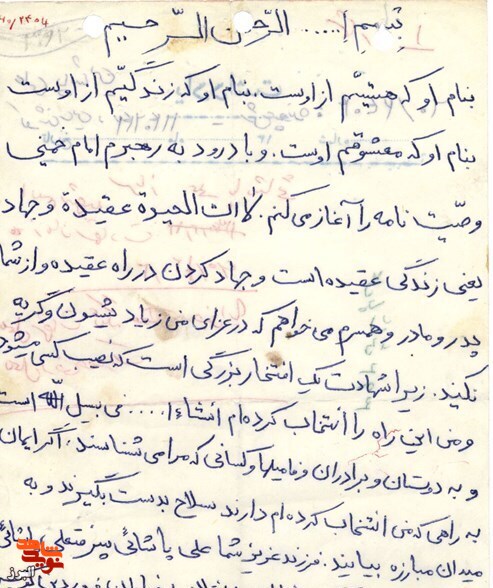 بسم ا..... الرّحمن الرّحیم
بنام او که هستیّم از اوست. بنام او که زندگیّم از اوست
بنام او که معشوقم اوست. و با درود به رهبرم امام خمینی
وصیّت نامه را آغاز می کنم. انّ الحیوة عقیدة و جهاد
یعنی زندگی عقیده است و جهاد کردن در راه عقیده و از شما
پدر و مادر و همسرم می خواهم که در عزای من زیاد شیون و گریه
نکنید. زیرا شهادت یک افتخار بزرگی است که نصیب کسی میشود
و من این راه را انتخاب کرده ام انشاء ا.... فی سبیل الله است
و به دوستان و برادران و فامیلها و کسانی که مرا می شناسند. اگر ایمان
به راهی که من انتخاب کرده ام دارند سلاح بدست بگیرند و به
میدان مبارزه بیایند. فرزند عزیز شما علی پاشائی